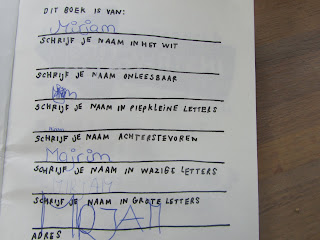 DIT BOEK IS VAN:
Mirjam
SCHRIJF JE NAAM IN HET WIT
SCHRIJF JE NAAM ONLEESBAAR
SCHRIJF JE NAAM IN PIEPKLEINE LETTERS
SCHRIJF JE NAAM ACHTERSTEVOREN
Majrim
SCHRIJF JE NAAM IN WAZIGE LETTERS
MIRJAM
SCHRIJF JE NAAM IN GROTE LETTERS
MIRJAM
ADRES